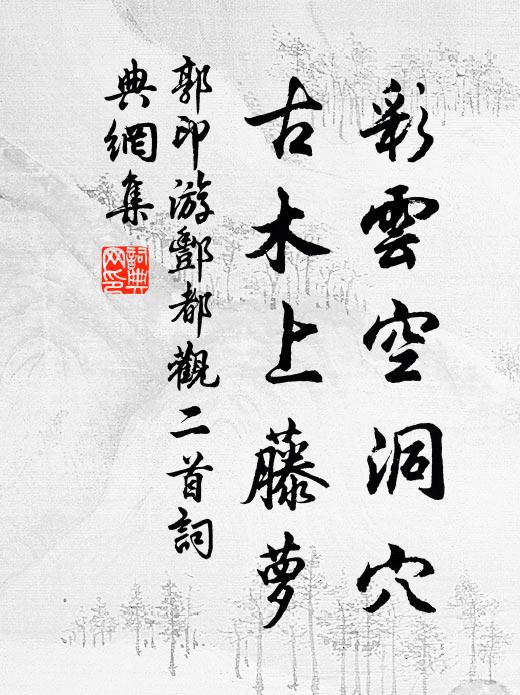 彩雲空洞穴
古木上藤萝
郭印游酆都觀二首詞
典網集
詞典網印